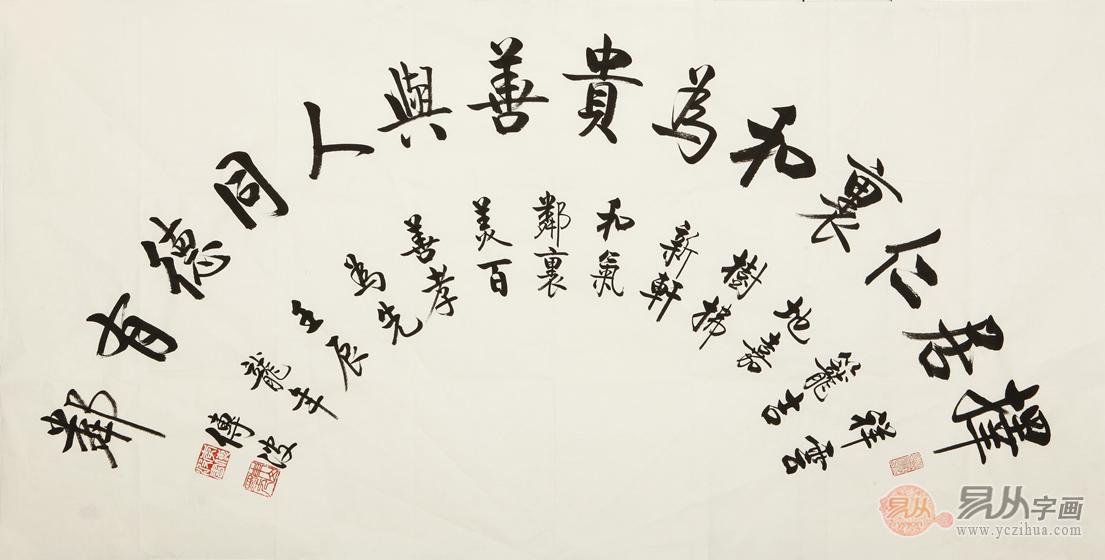 擇居仁裏和為貴善與人同德有鄰
祥雲
籠吉
地嘉
樹拂
新軒
和氣
鄰裏
美百
善孝
為先
壬辰
龍年
傅波
易从字画
www.yczihua.com